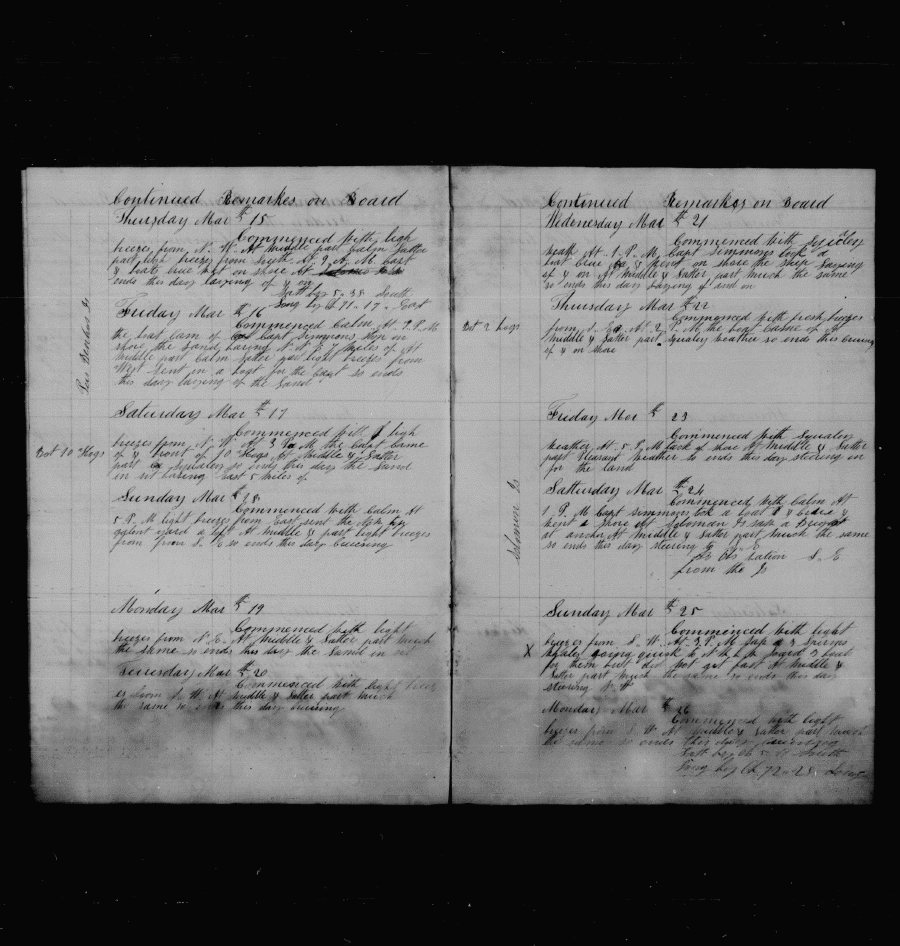 Continued Remarkes on Board
Thursday Mar # 15
Commenced with ligh
breezes from N. W. At middle part Calm Latter
part ligh breezes from South At 9 A. M. Capt
& boats crew went on shore At
ends this day laying of & on
Latt by 5 - 38 South
Long by
Friday Mar # 16
Commenced Calm At 7 P. M
the boat Cam of Capt Simmons Stop on
shore the Land baring N. W. 7 Miles of At
middle part Calm Latter part light breezes from
West sent in a boat for the Capt so ends
this day laying of the Land
Saturdays Mar # 17
Commenced With ligh
Bot 10 Hogs
breezes from N. W. At 3 P. M the Capt Came
of & brout of 10 Hogs At Middle & Latter
part Squaley so ends this day the Land
in sit baring East 5 miles of
Sunday Mar # 18
Commenced With Calm At
5 P. M light breezes from East sent the
galent yard up At middle & part light breezes
from from S. E so ends this day
Monday Mar # 19
Commenced With light
breezes from N. E. At Middle & Latter part much
the same so ends this day the Land in sit
Tuersday Mar # 20
Commenced With light
es from S. W At middle & Latter part much
the same so ends this day
Continued Remarkes on Board
Wedenesday Mar # 21
Commenced With
weath At 1 P. M Capt Simmons took a
boat crew & went on shore the ship laying
of & on At middle & Latter part much the same
so ends this day laying of and on
Thursday Mar # 22
Commenced with fresh breezes
Bot 2 hogs
from At 2 P. M the boat Came of At
middle & Latter part Squaley Weather so ends this
of & on shore
Friday Mar # 23
Commenced With Squaley
weather At 5 P. M tack of shore At Middle & Latter
part Pleasant Weather so ends this day steering in
for the land
Solomon Is
Satturday Mar # 24
Commenced With Calm At
1 P. M Capt Simmons took a boat & crew &
went a shore At Soloman Is saw a
at anchor At middle & Latter part much the same
so ends this day steering
S. E
from the Is
Sunday Mar # 25
Commenced With light
X
breezes from S. W. At 3 P. M Saw
whales going quick to lowerd 3 boat
for them but did not get fast At Middle &
Latter part much the same so ends this day
steering
Monday Mar # 26
Commenced with light
breezes from S. W At middle & Latter part much
the same so ends this day
Latt by South
Long by